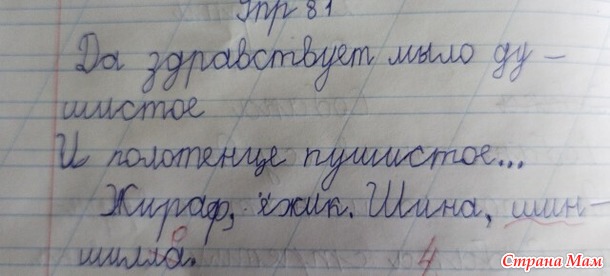 Упр 81
Да здравствует мыло ду-
шистое
И полотенце пушистое...
Жираф, ёжик. Шина, шин-
шилла.
4
Страна Мам